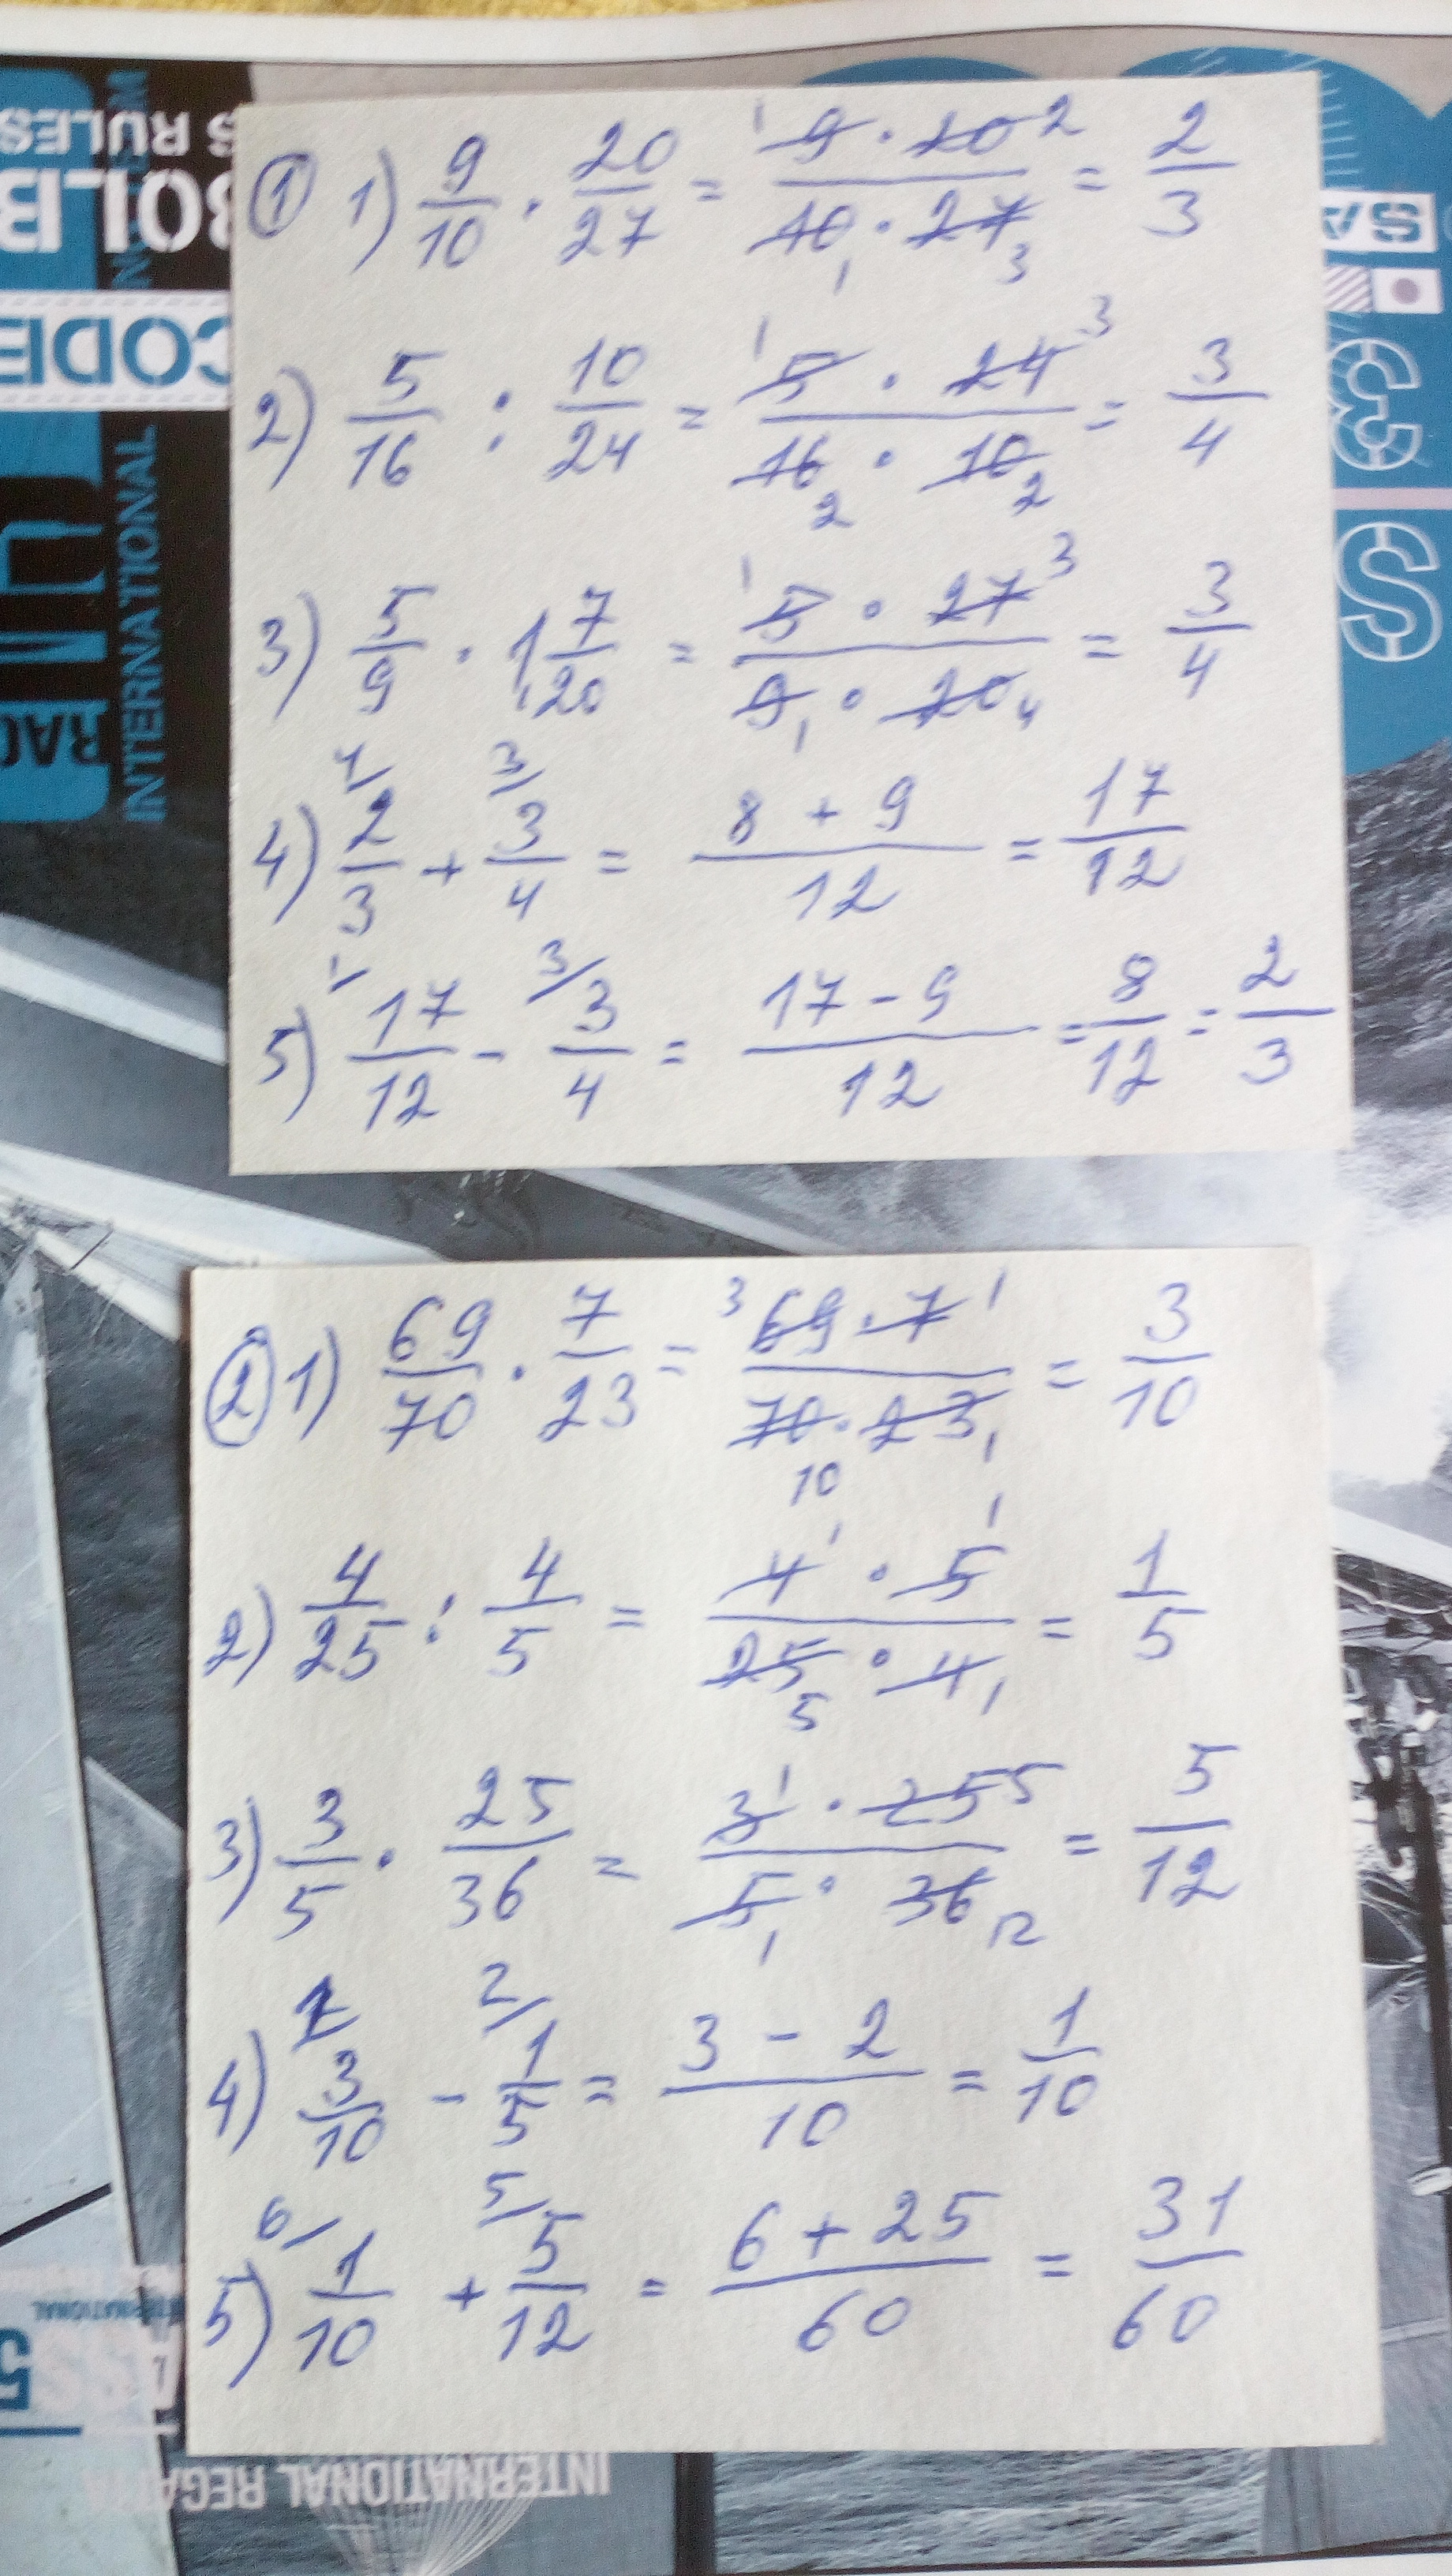 ① 1) 9/10 · 20/27 = 9 · 20 / 10 · 27 = 2/3
2) 5/16 : 10/24 = 5 · 24 / 16 · 10 = 3/4
3) 5/9 · 1 7/20 = 5 · 27 / 9 · 20 = 3/4
4) 2/3 + 3/4 = 8 + 9 / 12 = 17/12
5) 17/12 - 3/4 = 17 - 9 / 12 = 8/12 = 2/3
② 1) 69/70 · 7/23 = 69 · 7 / 70 · 23 = 3/10
2) 4/25 : 4/5 = 4 · 5 / 25 · 4 = 1/5
3) 3/5 · 25/36 = 3 · 25 / 5 · 36 = 5/12
4) 3/10 - 1/5 = 3 - 2 / 10 = 1/10
5) 1/10 + 5/12 = 6 + 25 / 60 = 31/60
RULES
CODE
INTERNATIONAL
INTERNATIONAL